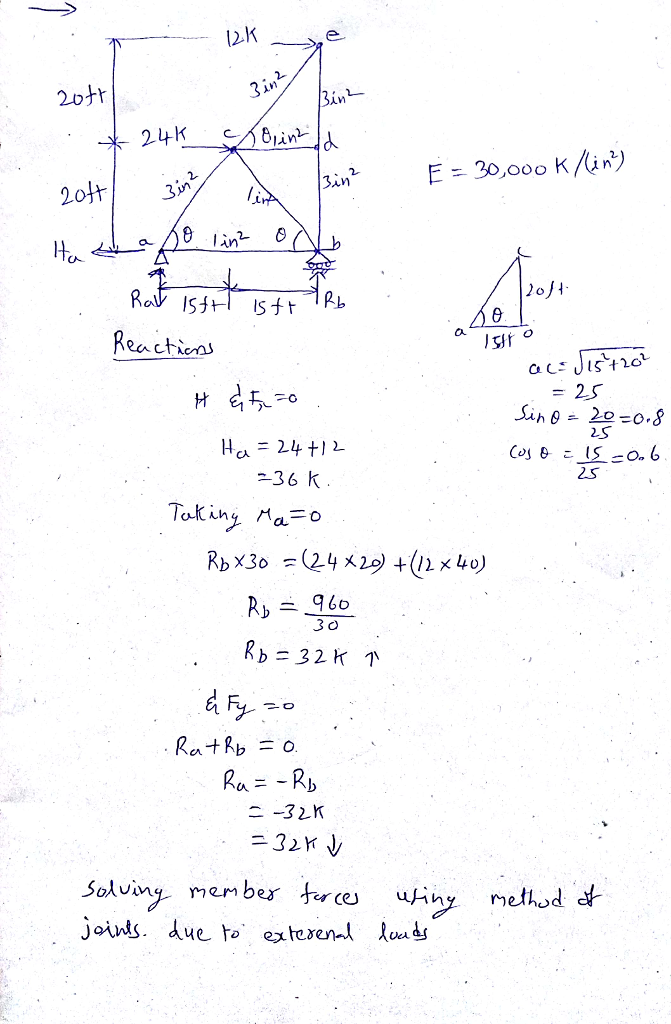 12K e
20ft 3in² 3in²
24K c θ 1in² d
E = 30,000 K/(in²)
20ft 3in² 1in² 3in²
Ha a θ 1in² θ b
Ra 15ft 15ft Rb
c
20ft
a θ 15ft o
Reactions
ac = √15²+20²
= 25
Sin θ = 20/25 = 0.8
Cos θ = 15/25 = 0.6
H & Fx = 0
Ha = 24+12
= 36 K.
Taking Ma=0
Rb×30 = (24×20) + (12×40)
Rb = 960/30
Rb = 32K ↑
& Fy = 0
Ra+Rb = 0.
Ra = -Rb
= -32K
= 32K ↓
Solving member forces using method of
joints. due to exterenal loads